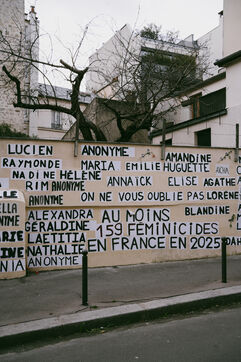 LUCIEN ANONYME AMANDINE
RAYMONDE MARIA EMILIE HUGUETTE
NADINE HÉLÈNE ANNAÏCK ELISE AGATHE
RIM ANONYME ON NE VOUS OUBLIE PAS LORENE
ANONYME
ALEXANDRA AU MOINS BLANDINE
GÉRALDINE 159 FÉMINICIDES
LAETITIA EN FRANCE EN 2025
NATHALIE
ANONYME